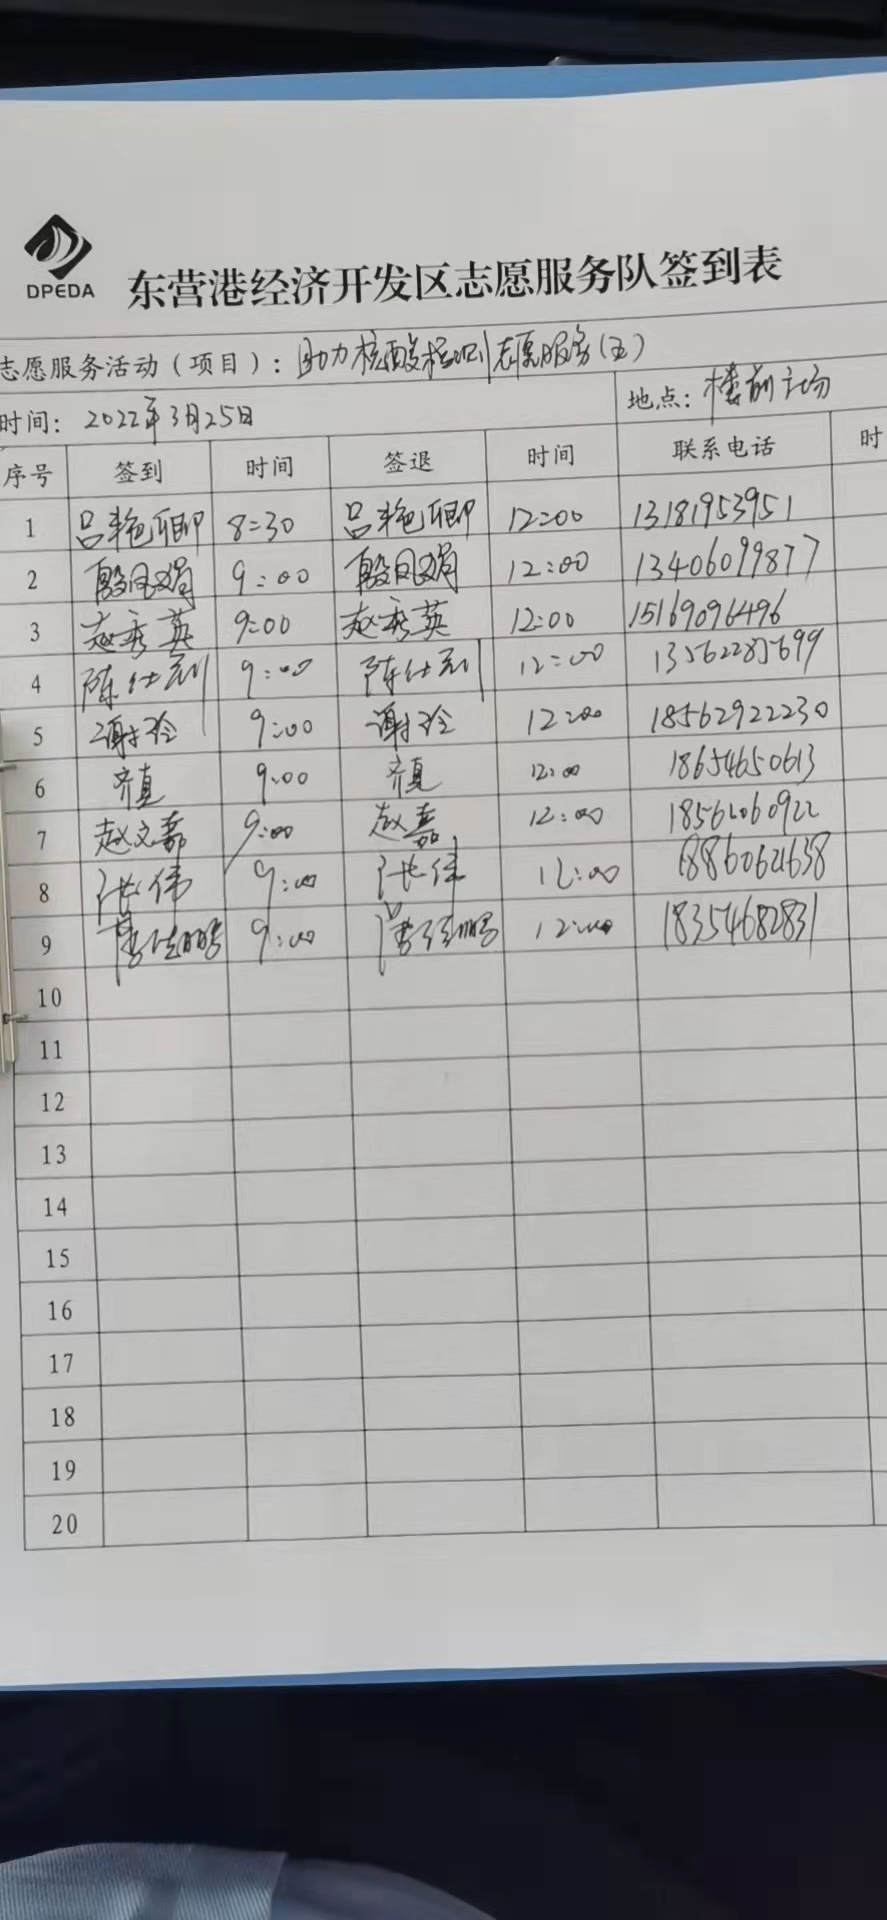 DPEDA
东营港经济开发区志愿服务队签到表
志愿服务活动（项目）：助力核酸检测志愿服务（五）
时间：2022年3月25日 地点：楼前广场
序号 签到 时间 签退 时间 联系电话 时
1 吕艳卿 8:30 吕艳卿 12:00 13181953951
2 殷凤娟 9:00 殷凤娟 12:00 13406099877
3 赵秀英 9:00 赵秀英 12:00 15169096496
4 陈仕 9:00 陈仕 12:00
5 谢玲 9:00 谢玲 12:00 18562922230
6 齐真 9:00 齐真 12:00 18654650613
7 赵文嘉 9:00 赵嘉 12:00 18562060922
8 张伟 9:00 张伟 12:00
9 9:00 12:00 18354682831
10
11
12
13
14
15
16
17
18
19
20